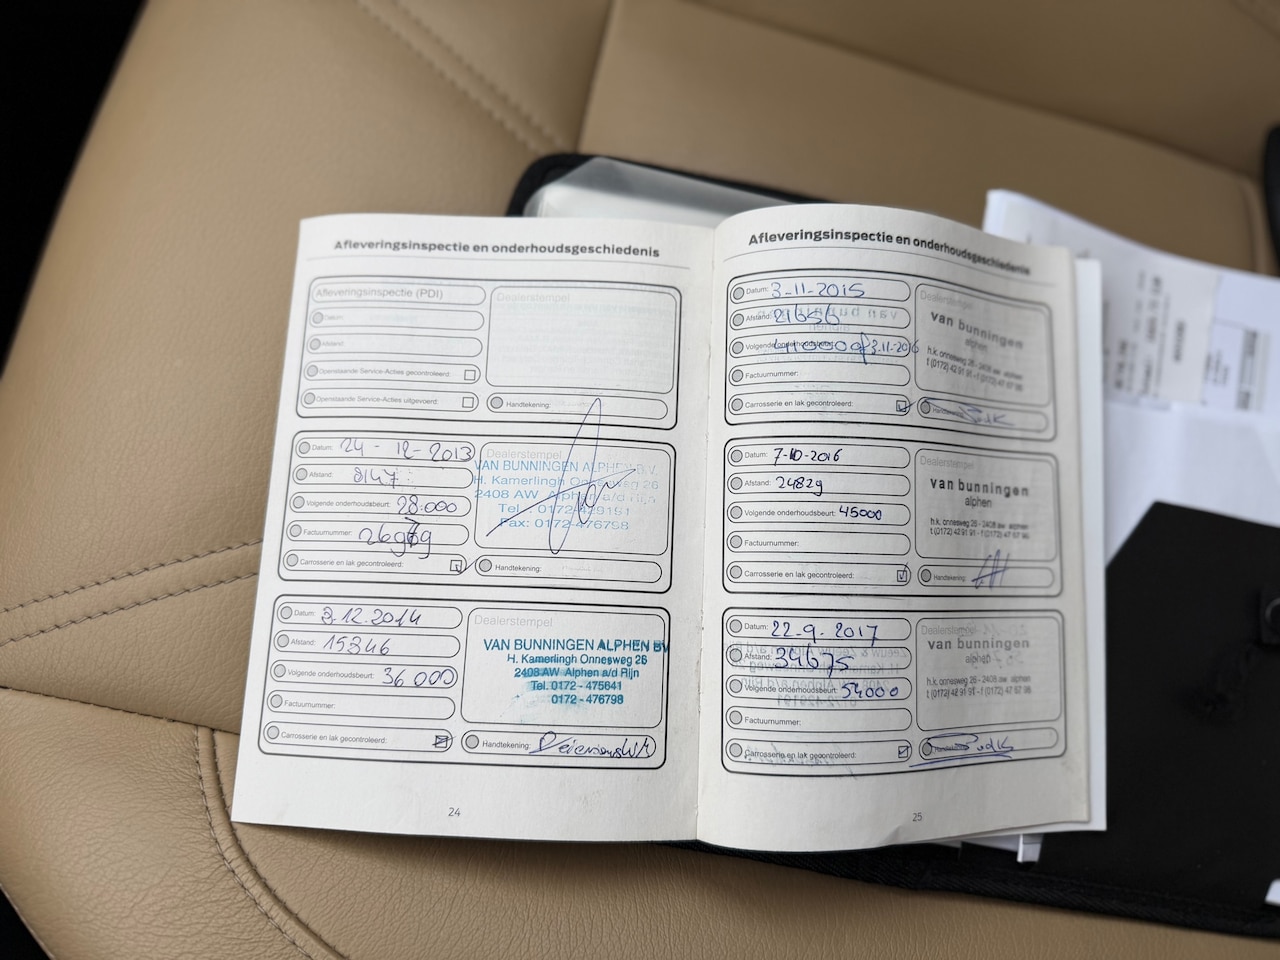 Afleveringsinspectie en onderhoudsgeschiedenis
Afleveringsinspectie (PDI)
Dealerstempel
Datum:
Afstand:
Openstaande Service-Acties gecontroleerd:
Openstaande Service-Acties uitgevoerd:
Handtekening:
Datum: 24 - 12 - 2013
Dealerstempel
Afstand: 8147
VAN BUNNINGEN ALPHEN B.V.
H. Kamerlingh Onnesweg 26
2408 AW Alphen a/d Rijn
Tel. 0172-429191
Fax: 0172-476798
Volgende onderhoudsbeurt: 28.000
Factuurnummer:
Carrosserie en lak gecontroleerd:
Handtekening:
Datum: 3.12.2014
Dealerstempel
Afstand: 15346
VAN BUNNINGEN ALPHEN BV
H. Kamerlingh Onnesweg 26
2408 AW Alphen a/d Rijn
Tel. 0172 - 475641
0172 - 476798
Volgende onderhoudsbeurt: 36 000
Factuurnummer:
Carrosserie en lak gecontroleerd:
Handtekening:
24
Afleveringsinspectie en onderhoudsgeschiedenis
Datum: 3-11-2015
Dealerstempel
Afstand: 21656
van bunningen
alphen
h.k. onnesweg 26 - 2408 aw alphen
t (0172) 42 91 91 - f (0172) 47 67 98
Volgende onderhoudsbeurt: 41000 of 3-11-2016
Factuurnummer:
Carrosserie en lak gecontroleerd:
Datum: 7-10-2016
Dealerstempel
Afstand: 24829
van bunningen
alphen
h.k. onnesweg 26 - 2408 aw alphen
t (0172) 42 91 91 - f (0172) 47 67 98
Volgende onderhoudsbeurt: 45000
Factuurnummer:
Carrosserie en lak gecontroleerd:
Handtekening:
Datum: 22-9-2017
Dealerstempel
Afstand: 34675
van bunningen
alphen
h.k. onnesweg 26 - 2408 aw alphen
t (0172) 42 91 91 - f (0172) 47 67 98
Volgende onderhoudsbeurt: 54000
Factuurnummer:
Carrosserie en lak gecontroleerd:
25